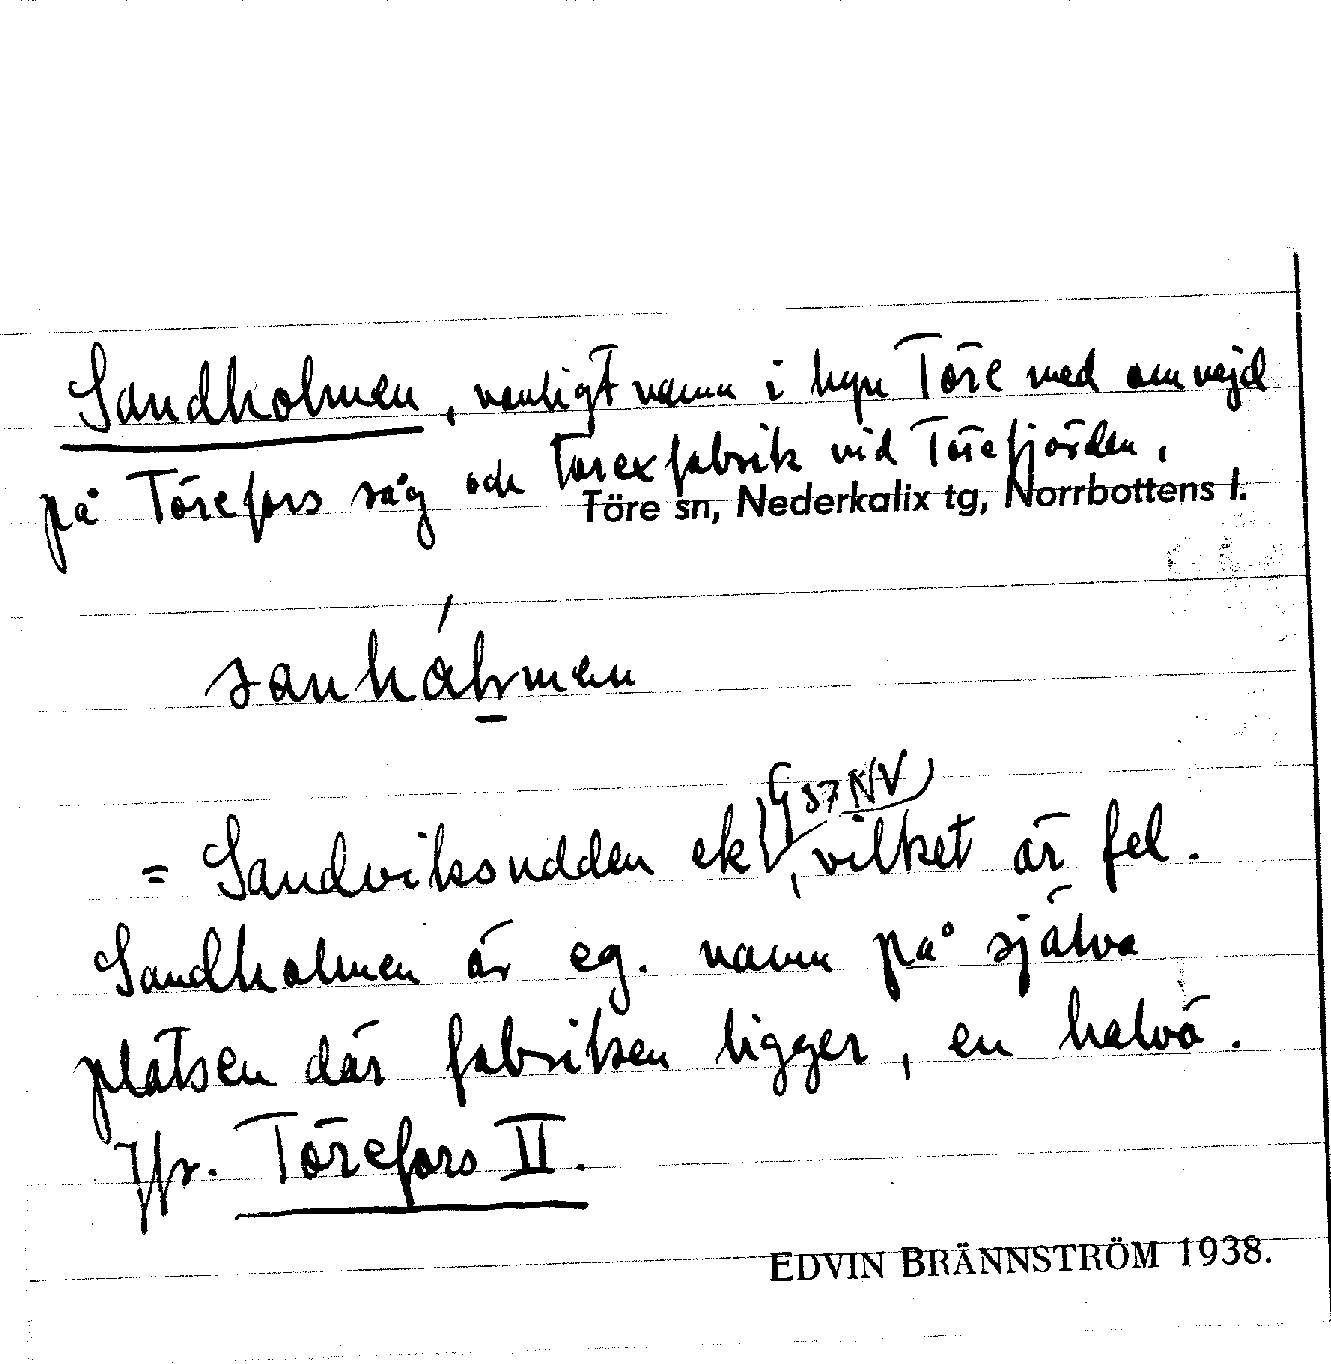 Sandholmen, vanligt namn i byn Töre med omnejd
på Törefors såg och torexfabrik vid Törefjärden.
Töre sn, Nederkalix tg, Norrbottens l.
= Sandviksudden ek (G 37 NV), vilket är fel.
Sandholmen är eg. namn på själva
platsen där fabriken ligger, en halvö.
Jfr. Törefors II.
EDVIN BRÄNNSTRÖM 1938.